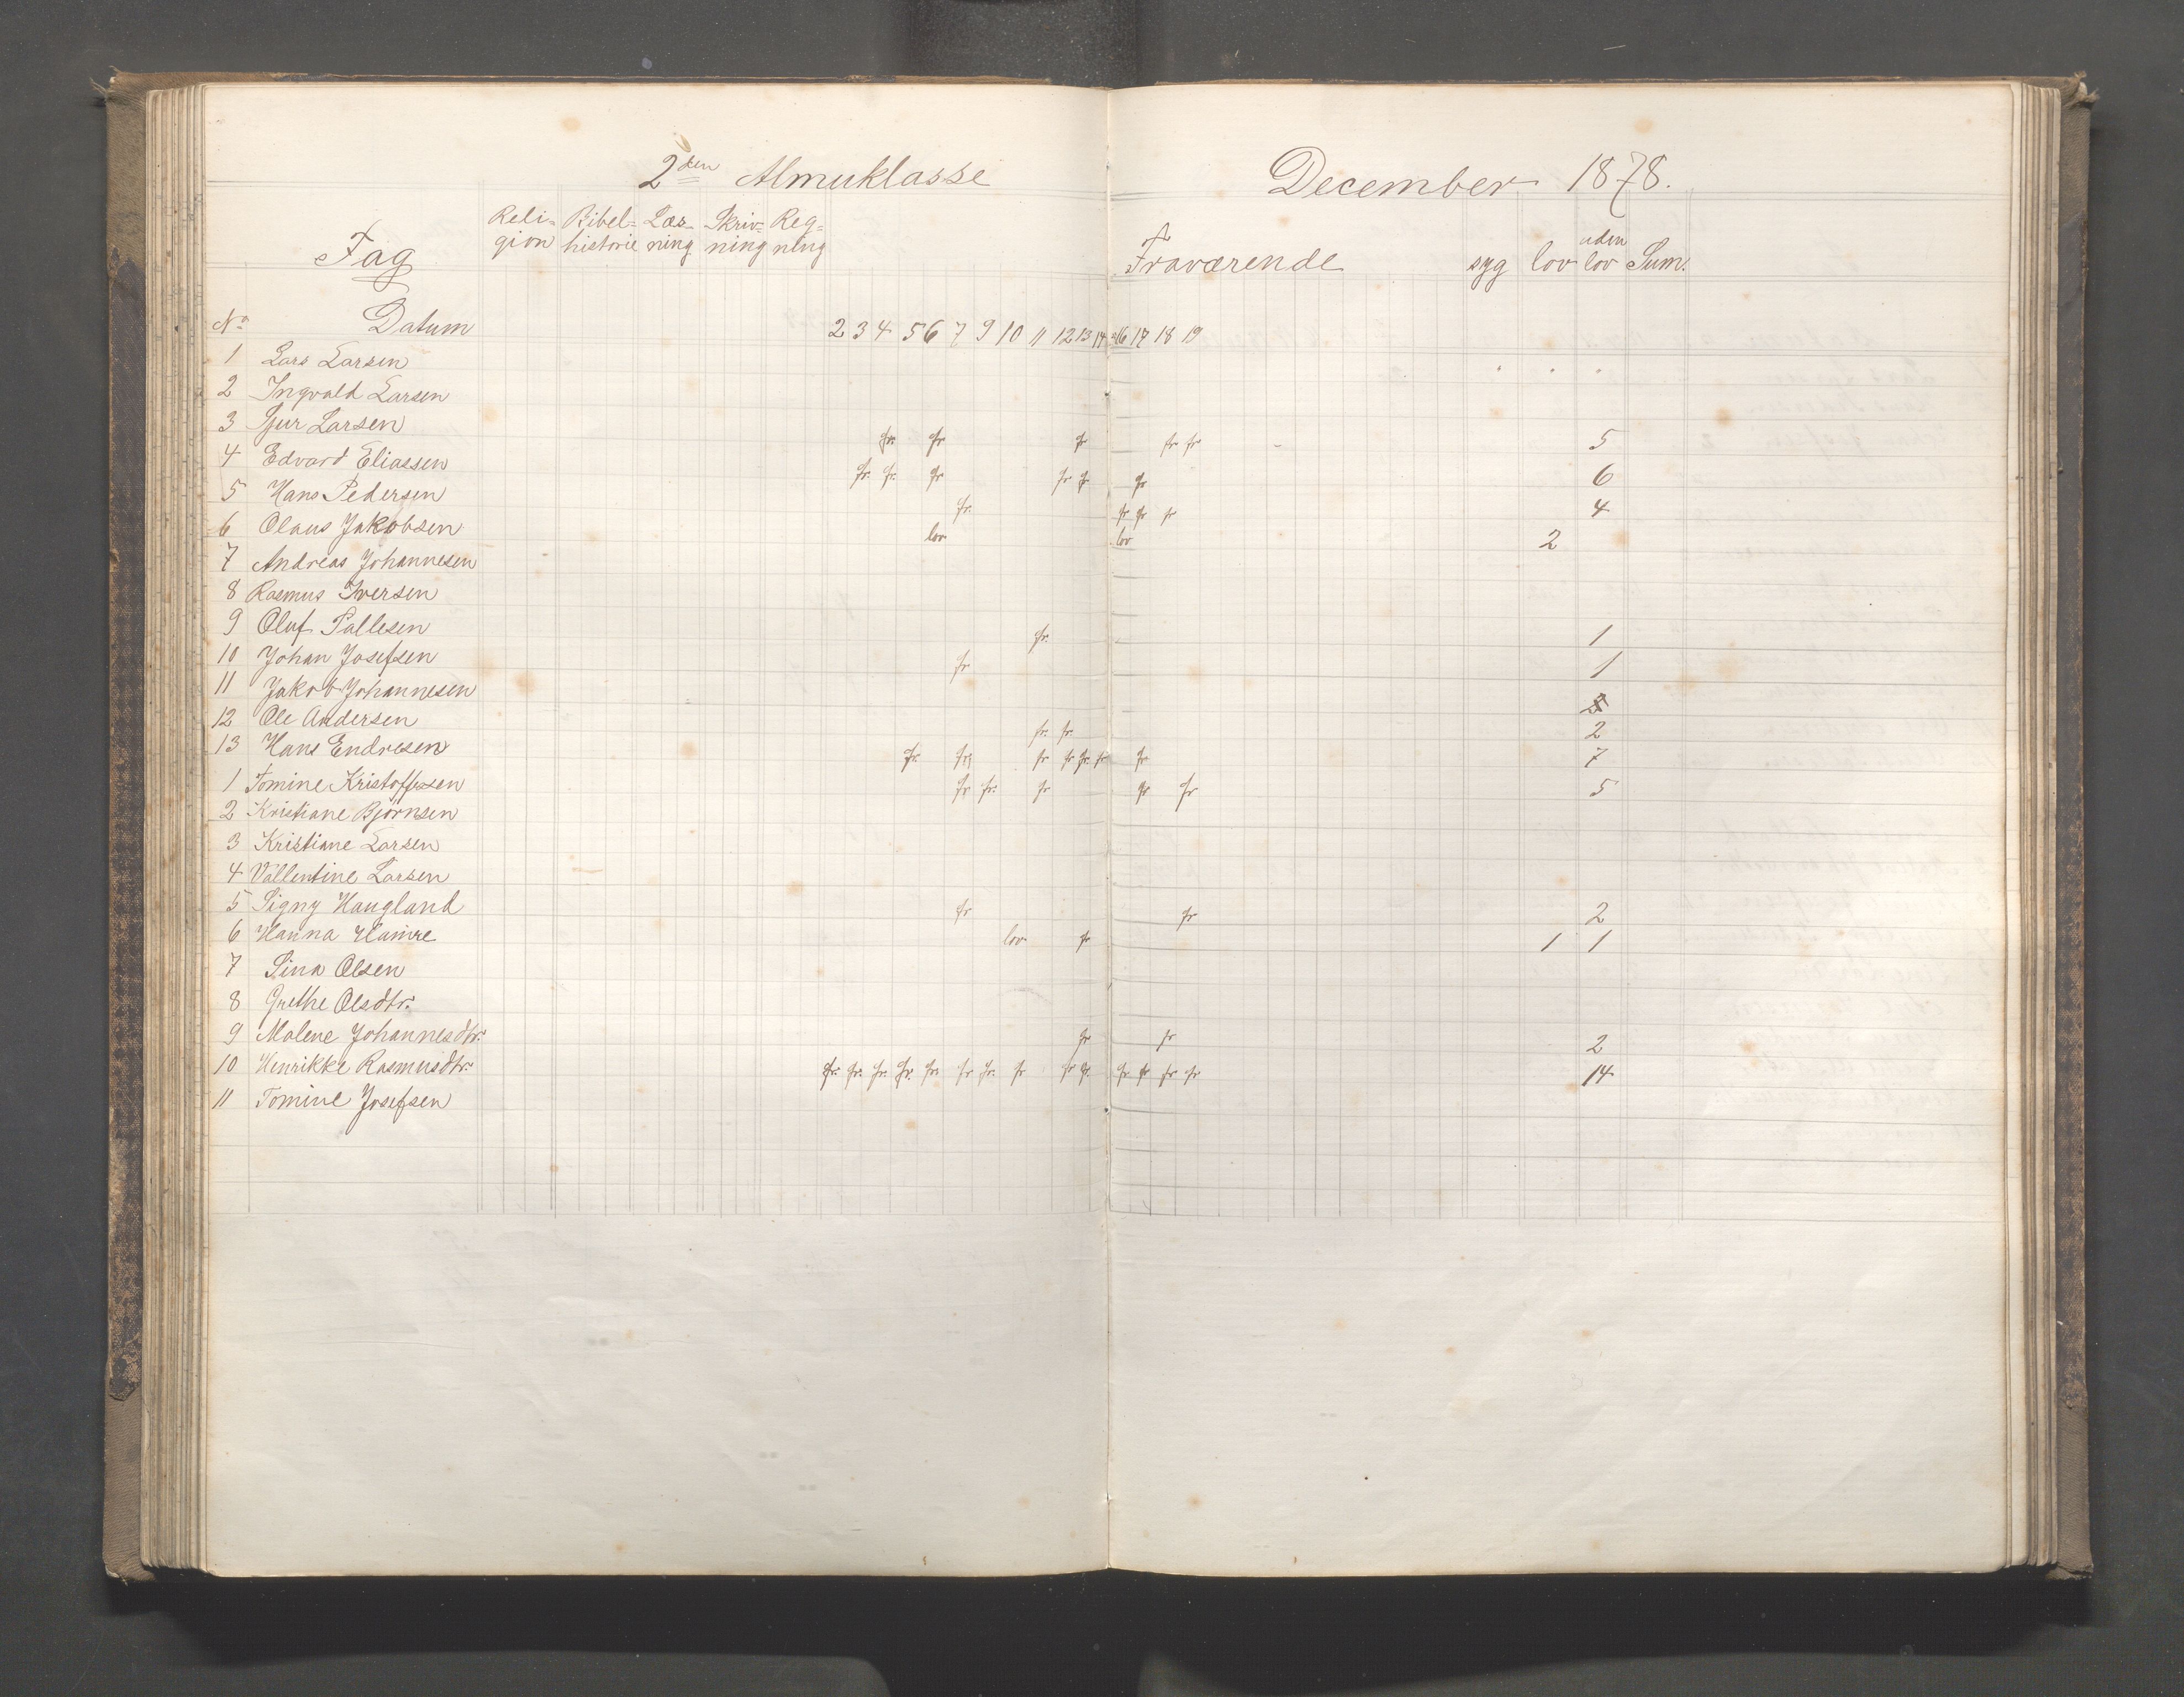 2den Almuklasse December 1878.
Fag Reli- Bibel- Læs- Skriv- Reg-
gion historie ning ning ning Fraværende syg lov uden lov Sum.
No Datum 2 3 4 5 6 7 9 10 11 12 13 14 16 17 18 19
1 Lars Larsen
2 Ingvald Larsen
3 Sjur Larsen fr. fr fr fr fr 5
4 Edvard Eliassen fr. fr. fr fr fr fr 6
5 Hans Pedersen fr. fr fr fr 4
6 Olaus Jakobsen lov lov 2
7 Andreas Johannesen
8 Rasmus Iversen
9 Oluf Pallesen fr. 1
10 Johan Josefsen fr 1
11 Jakob Johannesen
12 Ole Andersen fr. fr. 2
13 Hans Endresen fr. fr fr fr fr. fr fr 7
1 Tomine Kristoffersen fr fr. fr fr fr 5
2 Kristiane Bjørnsen
3 Kristiane Larsen
4 Vallentine Larsen
5 Signy Haugland fr fr 2
6 Hanna Hamre lov fr 1 1
7 Sina Olsen
8 Grethe Olsdtr.
9 Malene Johannesdtr. fr fr 2
10 Henrikke Rasmusdtr. fr. fr. fr. fr. fr. fr fr. fr fr fr. fr fr fr fr 14
11 Tomine Josefsen